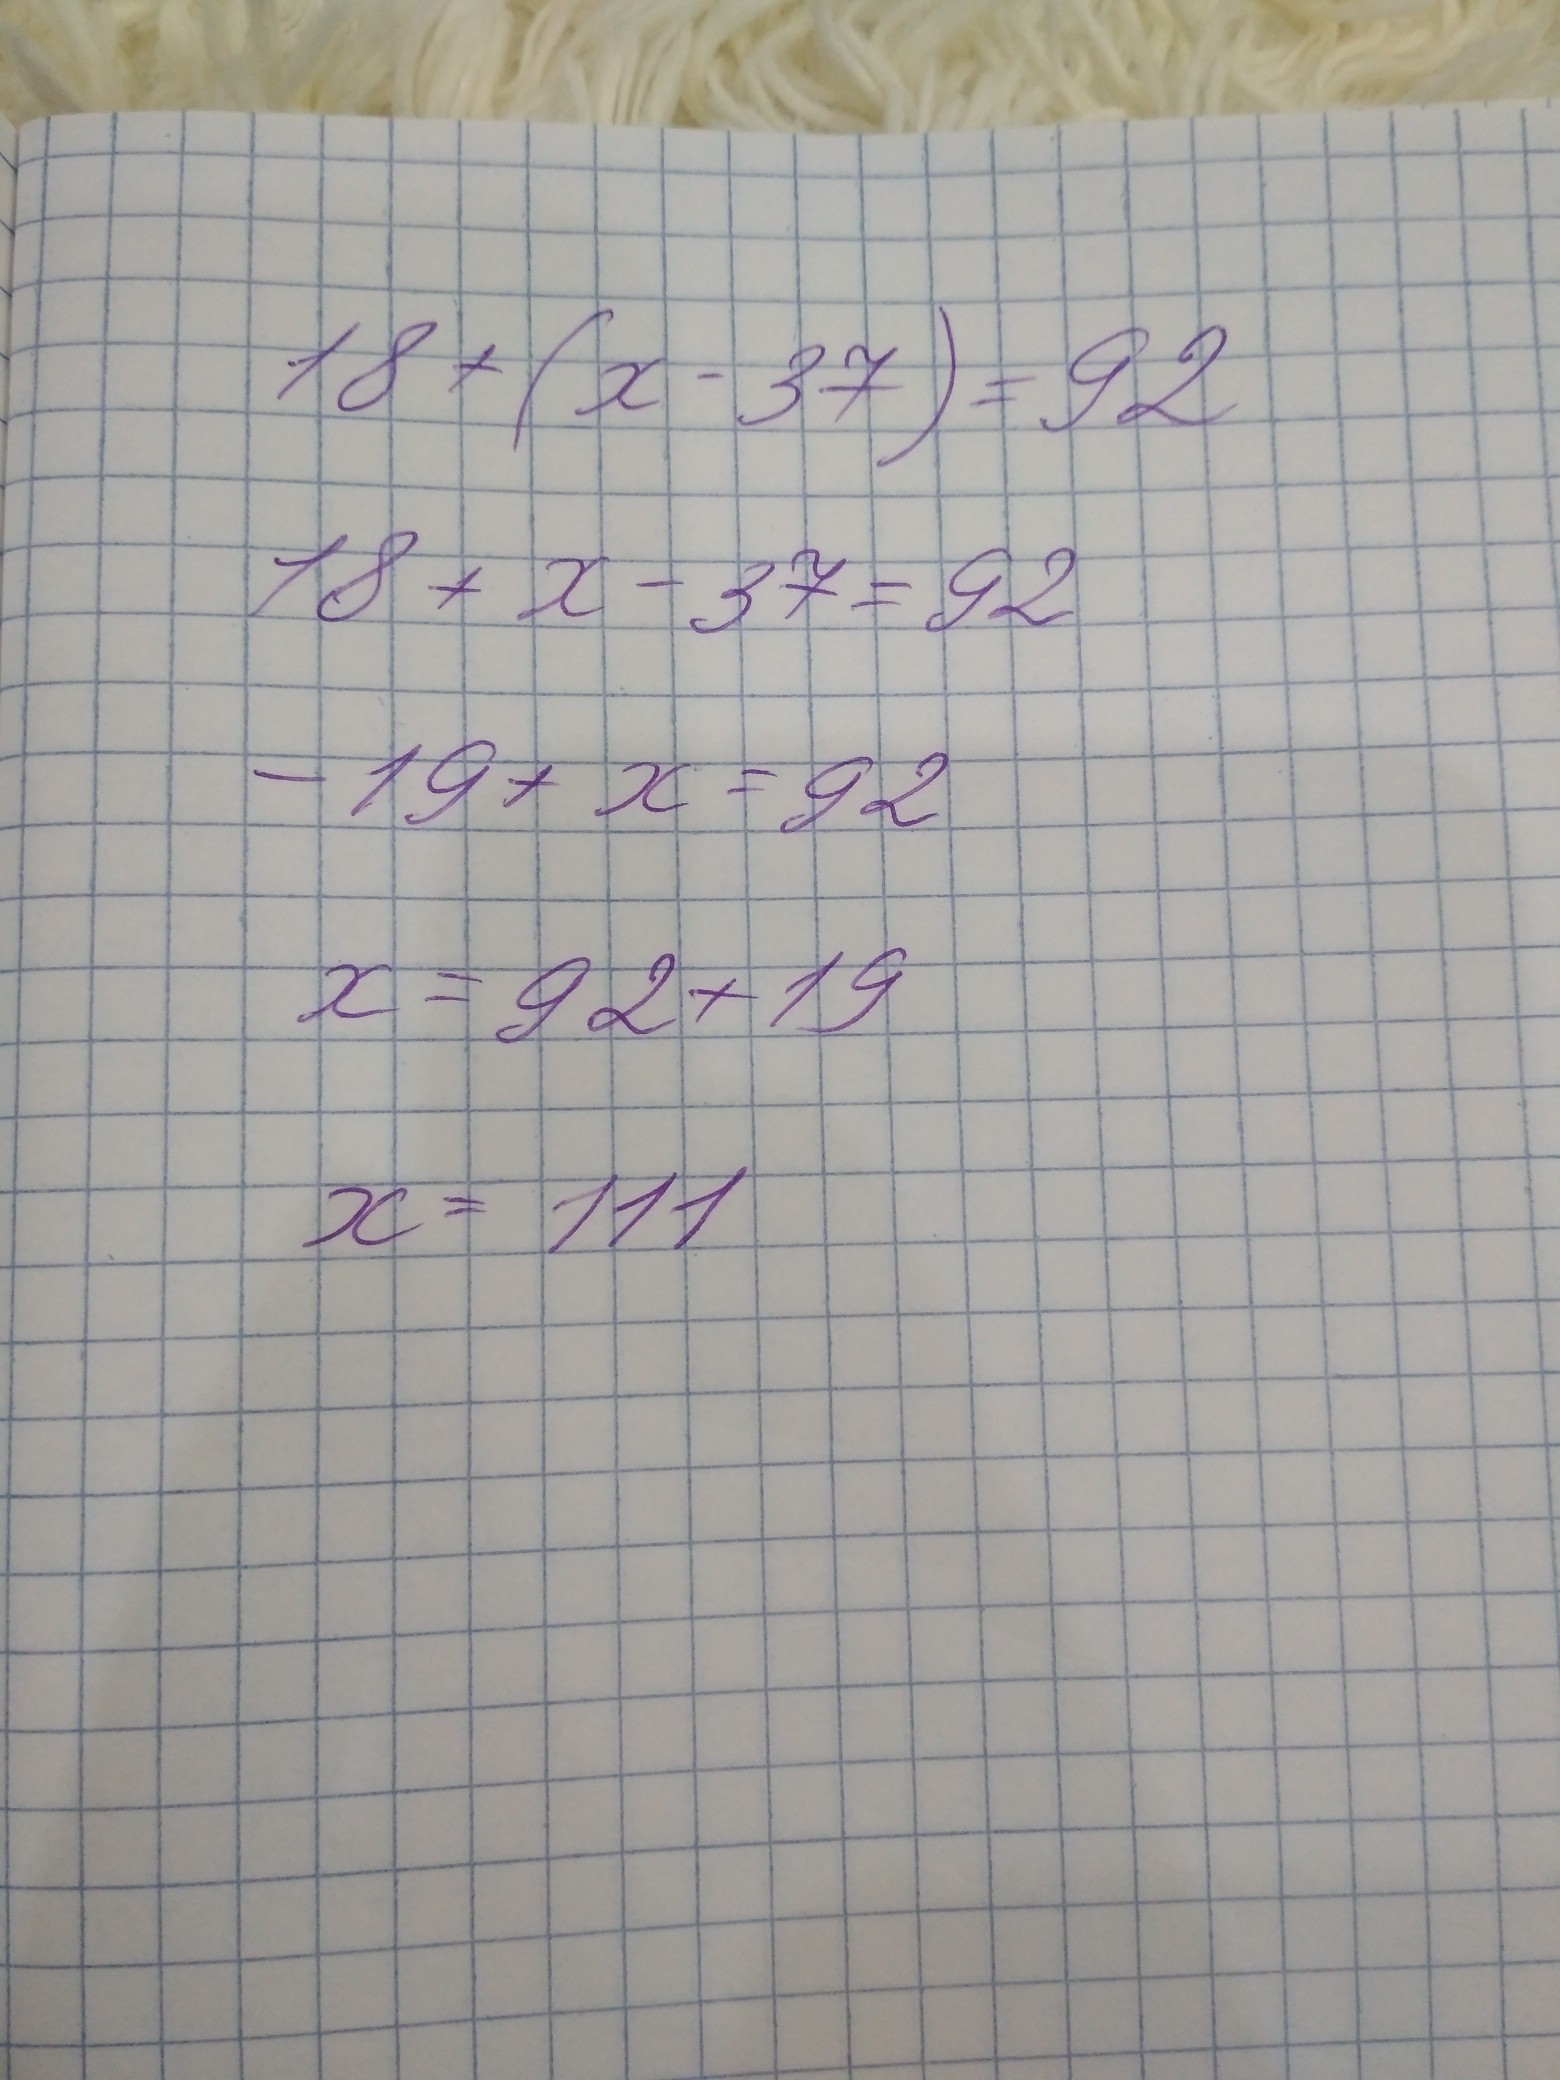 18 + (x - 37) = 92
18 + x - 37 = 92
- 19 + x = 92
x = 92 + 19
x = 111